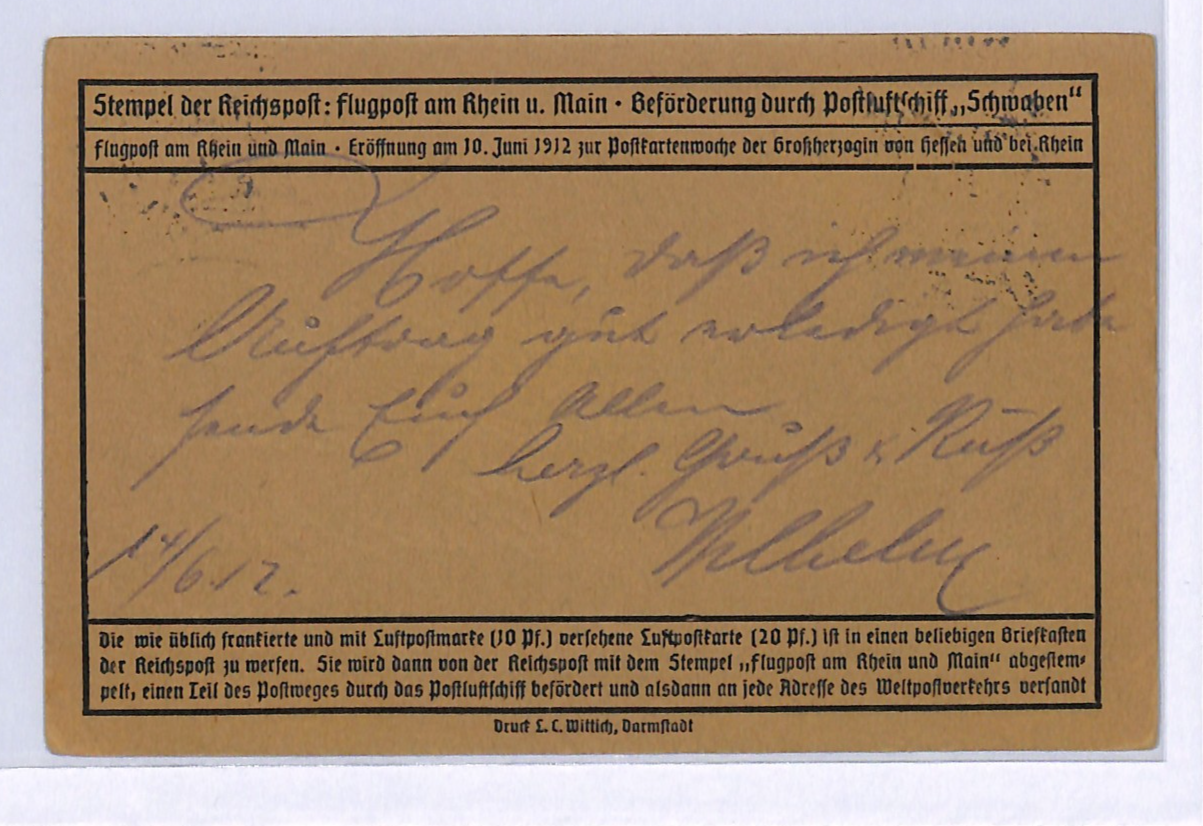 Stempel der Reichspost: Flugpost am Rhein u. Main · Beförderung durch Postluftschiff „Schwaben“
Flugpost am Rhein und Main · Eröffnung am 10. Juni 1912 zur Postkartenwoche der Großherzogin von Hessen und bei Rhein
Hoffe, daß ich meinen
Auftrag gut erledigt habe
sende Euch Allen
herzl. Gruß & Kuß
Wilhelm
14/6.12.
Die wie üblich frankierte und mit Luftpostmarke (10 Pf.) versehene Luftpostkarte (20 Pf.) ist in einen beliebigen Briefkasten
der Reichspost zu werfen. Sie wird dann von der Reichspost mit dem Stempel „Flugpost am Rhein und Main“ abgestem-
pelt, einen Teil des Postweges durch das Postluftschiff befördert und alsdann an jede Adresse des Weltpostverkehrs versandt
Druck L. C. Wittich, Darmstadt